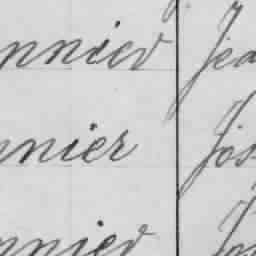 nnier Jea
nnier Jos
nnier Jos